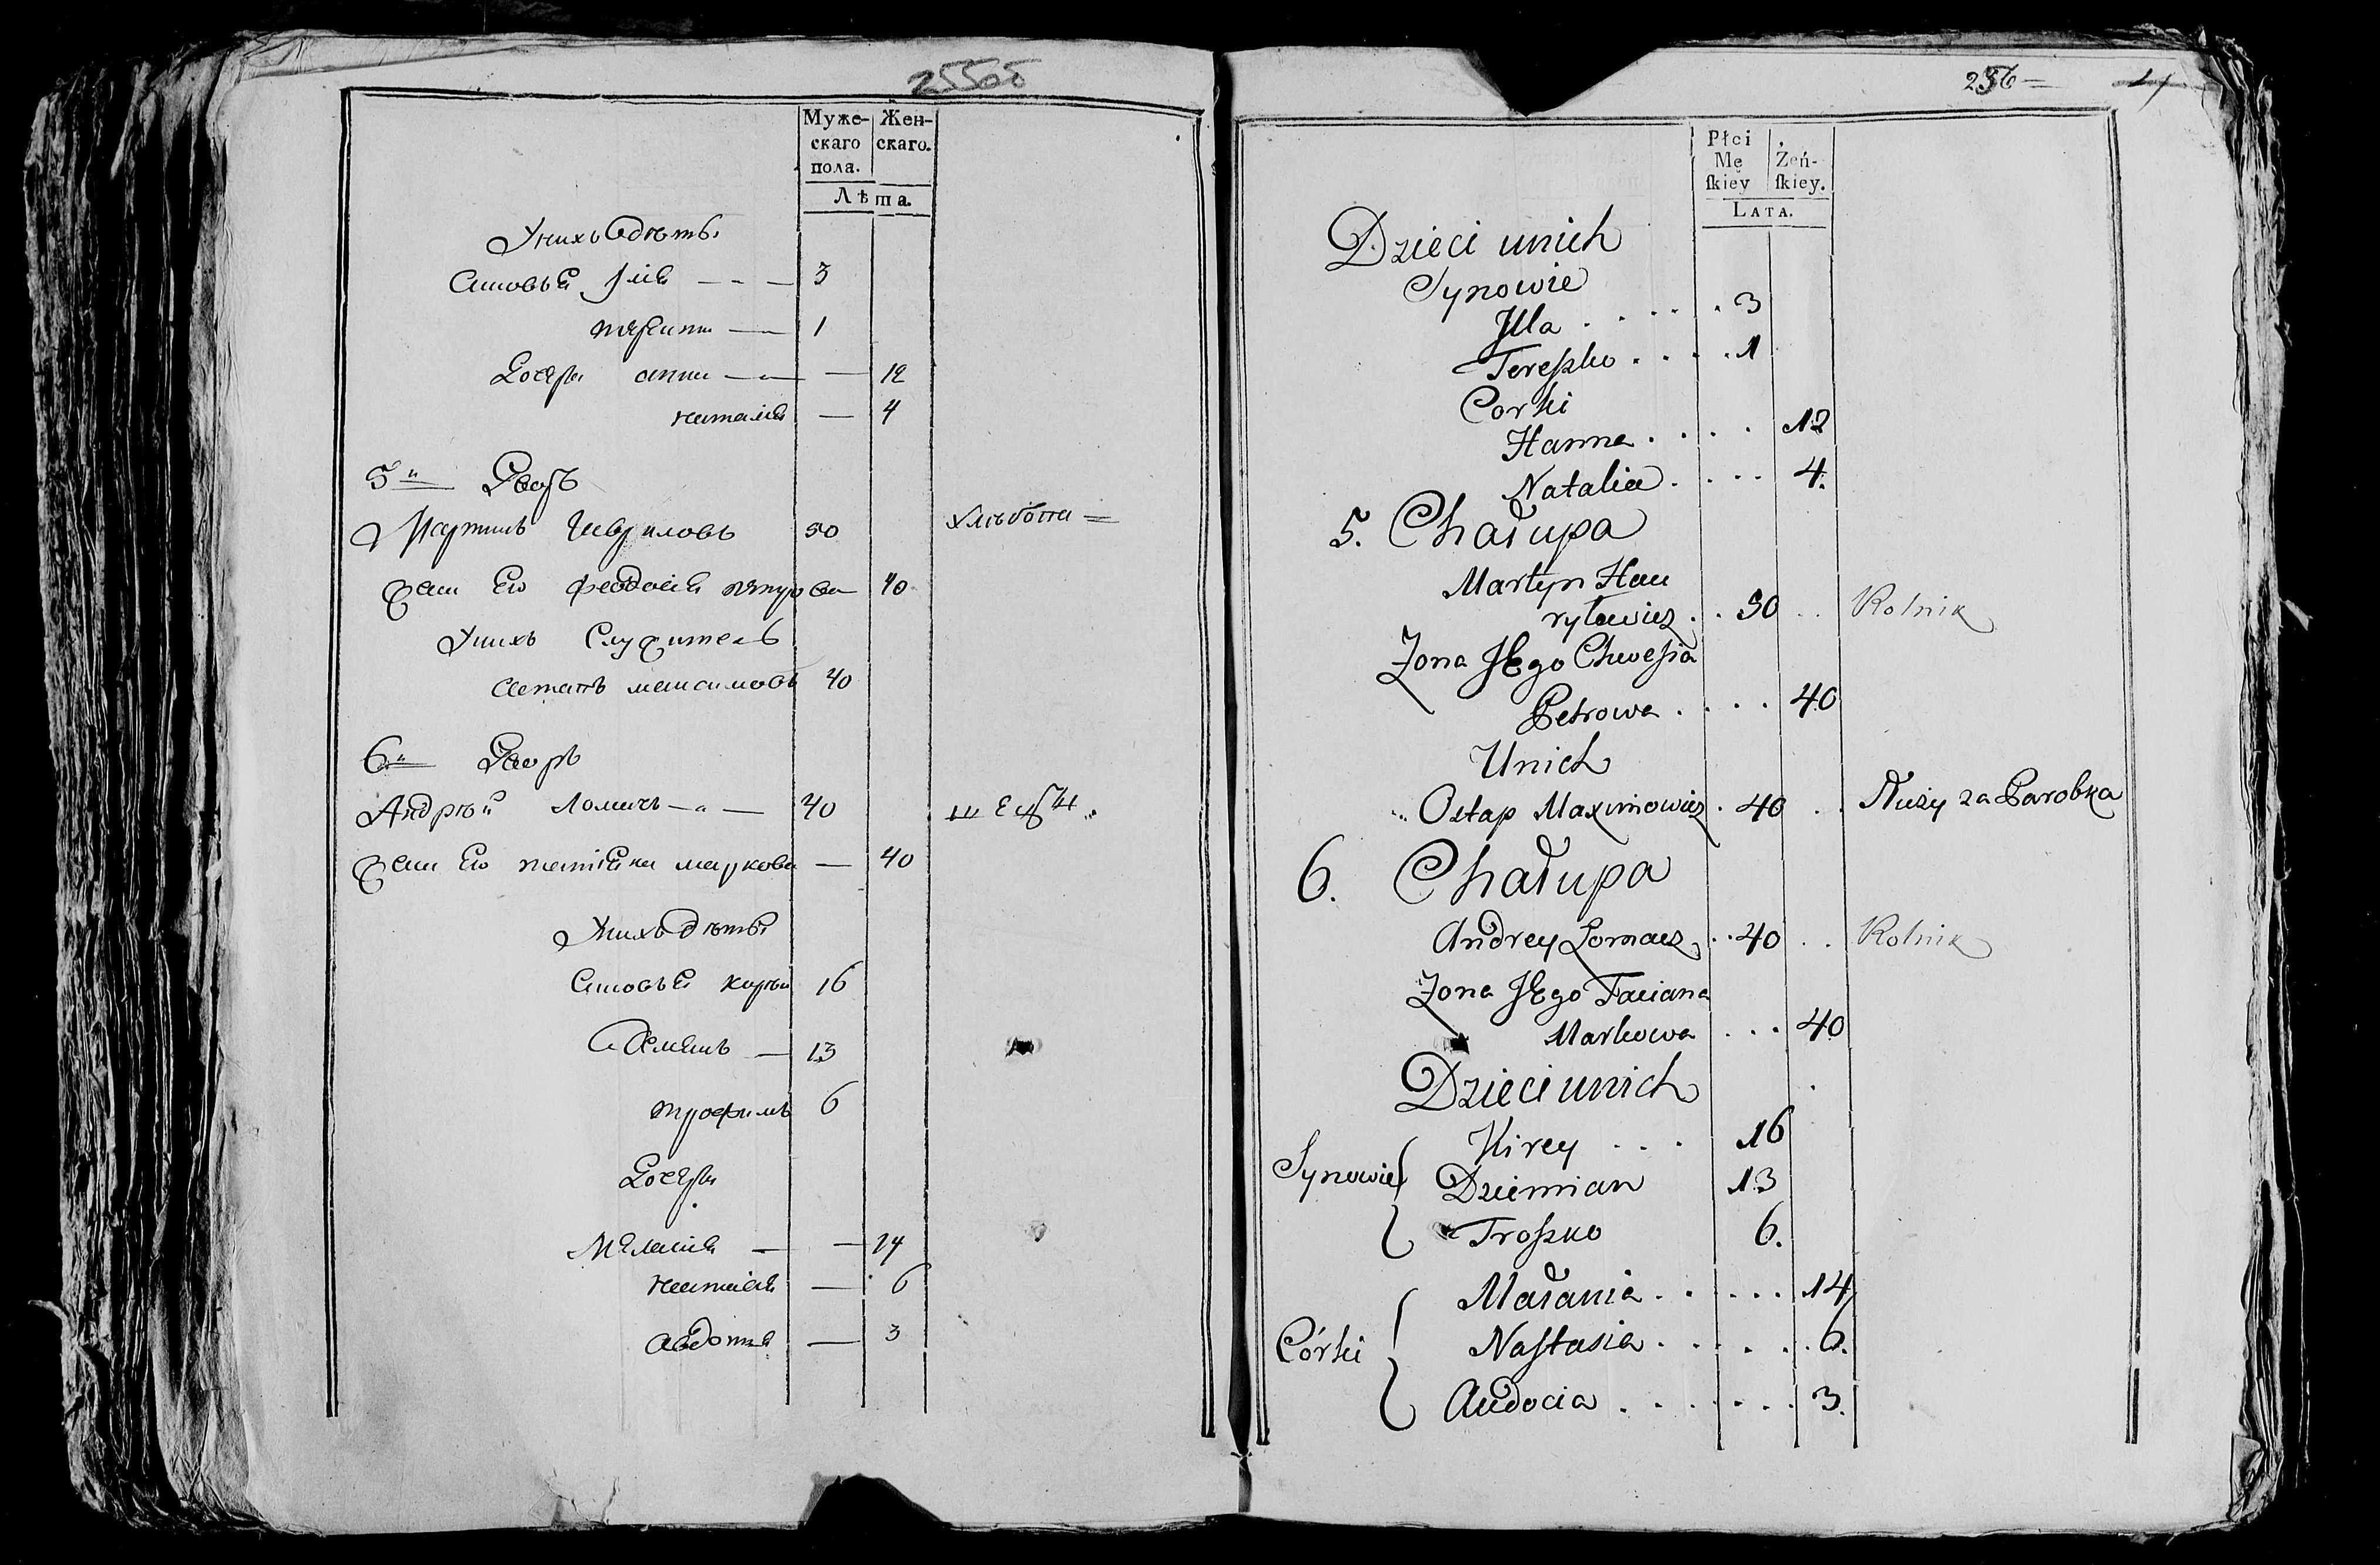 255об
Муже-
скаго
пола.
Жен-
скаго.
Лѣта.
У нихъ дѣты
Сыновья Илія — 3
терентий — 1
Дочеръ анна — — 12
наталия — 4
5й Дворъ
Мартинъ Гавриловъ 50 хлѣбопа
Жена Его феодосия петрова 40
У нихъ Служитель
астапъ максимовъ 40
6й Дворъ
Андрѣй Ломачъ — 40
Жена Его татіяна маркова — 40
У нихъ дѣты
Сыновья кирѣй 16
Демянъ — 13
трофимъ 6
Дочеры
Меланія — — 14
настасія — 6
авдотия — 3
256 —
Płci
Mę
ſkiey
Żeń-
ſkiey.
LATA.
Dzieci unich
Synowie
Jlla . . . . . 3
Tereſzko . . . . 1
Corki
Hanna . . . . 12
Natalia . . . . 4.
5. Chałupa
Martyn Hau
ryłowicz . . 50 . . Rolnik
Zona JEgo Chweſia
Petrowa . . . . 40
Unich
Ostap Maximowicz . 40 . . Służy za Parobka
6. Chałupa
Andrey Łomacz . . 40 . . Rolnik
Zona JEgo Taciana
Markowa . . . 40
Dzieci unich
Synowie Kirey . . . 16
Dziemian 13
Troſzko 6.
Małania . . . . . 14
Córki Naſtasia . . . . . . 6.
Audocia . . . . . . . 3.